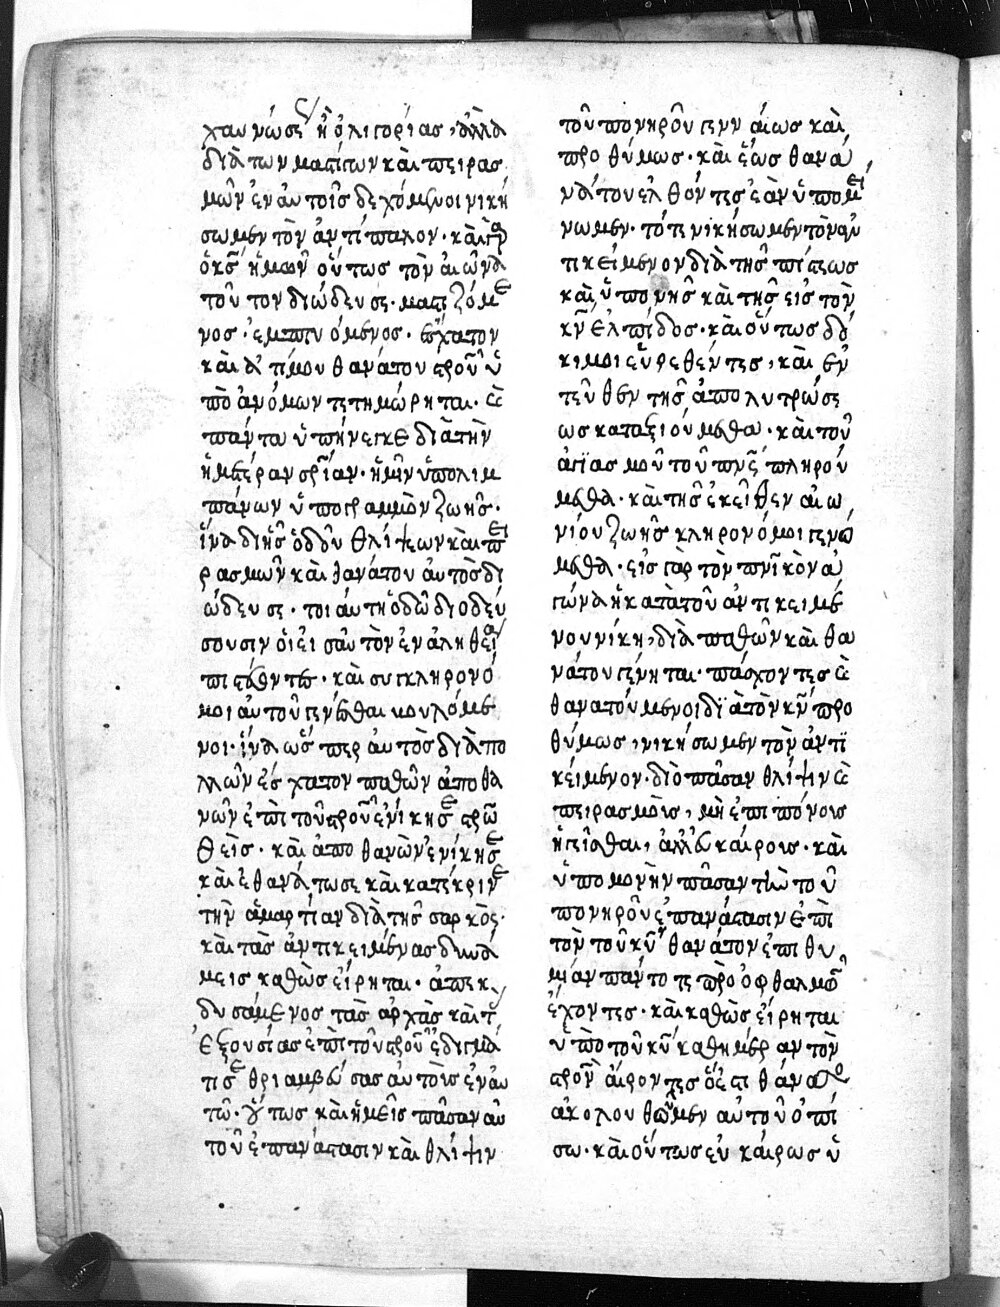 χαυνώσει ἢ ὀλιγορίας, ἀλλὰ
διὰ τῶν μαστίγων καὶ πειρασ
μῶν ἐν αὐτοῖς δεχόμενοι νική
σωμεν τὸν ἀντίπαλον· καὶ γὰρ
ὁ κς ἡμῶν οὕτως τὸν αἰῶνα
τοῦτον διώδευσε· μαστιζόμε
νος· ἐμπτυόμενος· ἔσχατον
καὶ ἀτίμου θανάτου σταυροῦ ὑ
πὸ ἀνόμων τετιμώρηται· καὶ
πάντα ὑπήνεγκε διὰ τὴν
ἡμετέραν σρίαν· ἡμῖν ὑπολιμ
πάνων ὑπογραμμὸν ζωῆς·
ἵνα δι ἧς ὁδοῦ θλίψεων καὶ πει
ρασμῶν καὶ θανάτου αὐτὸς δι
ώδευσε· τοιαύτη ὁδῶ διοδεύ
σουσιν οἱ εἰς αὐτὸν ἐν ἀληθεία
πιστεύοντες· καὶ συγκληρονό
μοι αὐτοῦ γενέσθαι βουλόμε
νοι· ἵνα ὥσπερ αὐτὸς διὰ πο
λλῶν ἐσχάτον παθῶν ἀποθα
νῶν ἐπὶ τοῦ σταυροῦ ἐνίκησε σταυρω
θεὶς· καὶ ἀποθανὼν ἐνίκησε
καὶ ἐθανάτωσε καὶ κατέκρινε
τὴν ἁμαρτίαν διὰ τῆς σαρκὸς·
καὶ τὰς ἀντικειμένας δυνά
μεις καθὼς εἴρηται· ἀπεκ
δυσάμενος τὰς ἀρχὰς καὶ τὰς
ἐξουσίας ἐπὶ τοῦ σταυροῦ ἐδιγμά
τισε θριαμβεύσας αὐτοὺς ἐν αὐ
τῶ· οὕτως καὶ ἡμεῖς πᾶσαν αὐ
τοῦ ἐπανάστασιν καὶ θλίψιν
τοῦ πονηροῦ γενναίως καὶ
προθύμως· καὶ ἕως θανά
νάτου ἐλθόντες ἐὰν ὑπομεί
νωμεν· τότε νικήσωμεν τὸν ἀν
τικείμενον διὰ τῆς πίστεως
καὶ ὑπομονῆς καὶ τῆς εἰς τὸν
κν ἐλπίδος· καὶ οὕτως δό
κιμοι εὑρεθέντες, καὶ ἐν
τεῦθεν τῆς ἀπολυτρώσε
ως καταξιούμεθα· καὶ τοῦ
ἁγιασμοῦ τοῦ πνς πληρού
μεθα· καὶ τῆς ἐκεῖθεν αἰω
νίου ζωῆς κληρονόμοι γενό
μεθα· εἰς γὰρ τὸν πνικὸν ἀ
γῶνα ἡ κατὰ τοῦ ἀντικειμέ
νου νίκη, διὰ παθῶν καὶ θα
νάτου γίνηται· πάσχοντες καὶ
θανατούμενοι διὰ τὸν κν προ
θύμως, νικήσωμεν τὸν ἀντι
κείμενον· διὸ πᾶσαν θλίψιν καὶ
πειρασμοὺς, μὴ ἐπιπόνοις
ἡγεῖσθαι, ἀλλ εὐκαίροις· καὶ
ὑπομονὴν πᾶσαν τὴν τοῦ
πονηροῦ ἐπανάστασιν ἐπὶ
τὸν τοῦ κυ θανάτου ἐπιθυ
μίαν πάντοτε πρὸ ὀφθαλμῶν
ἔχοντες· καὶ καθὼς εἴρηται
ὑπὸ τοῦ κυ καθημέραν τὸν
σταυρὸν αἴροντες ὅς ἐστι θάνατος
ἀκολουθῶμεν αὐτοῦ ὀπί
σω· καὶ οὕτως εὐκαίρως ὑ